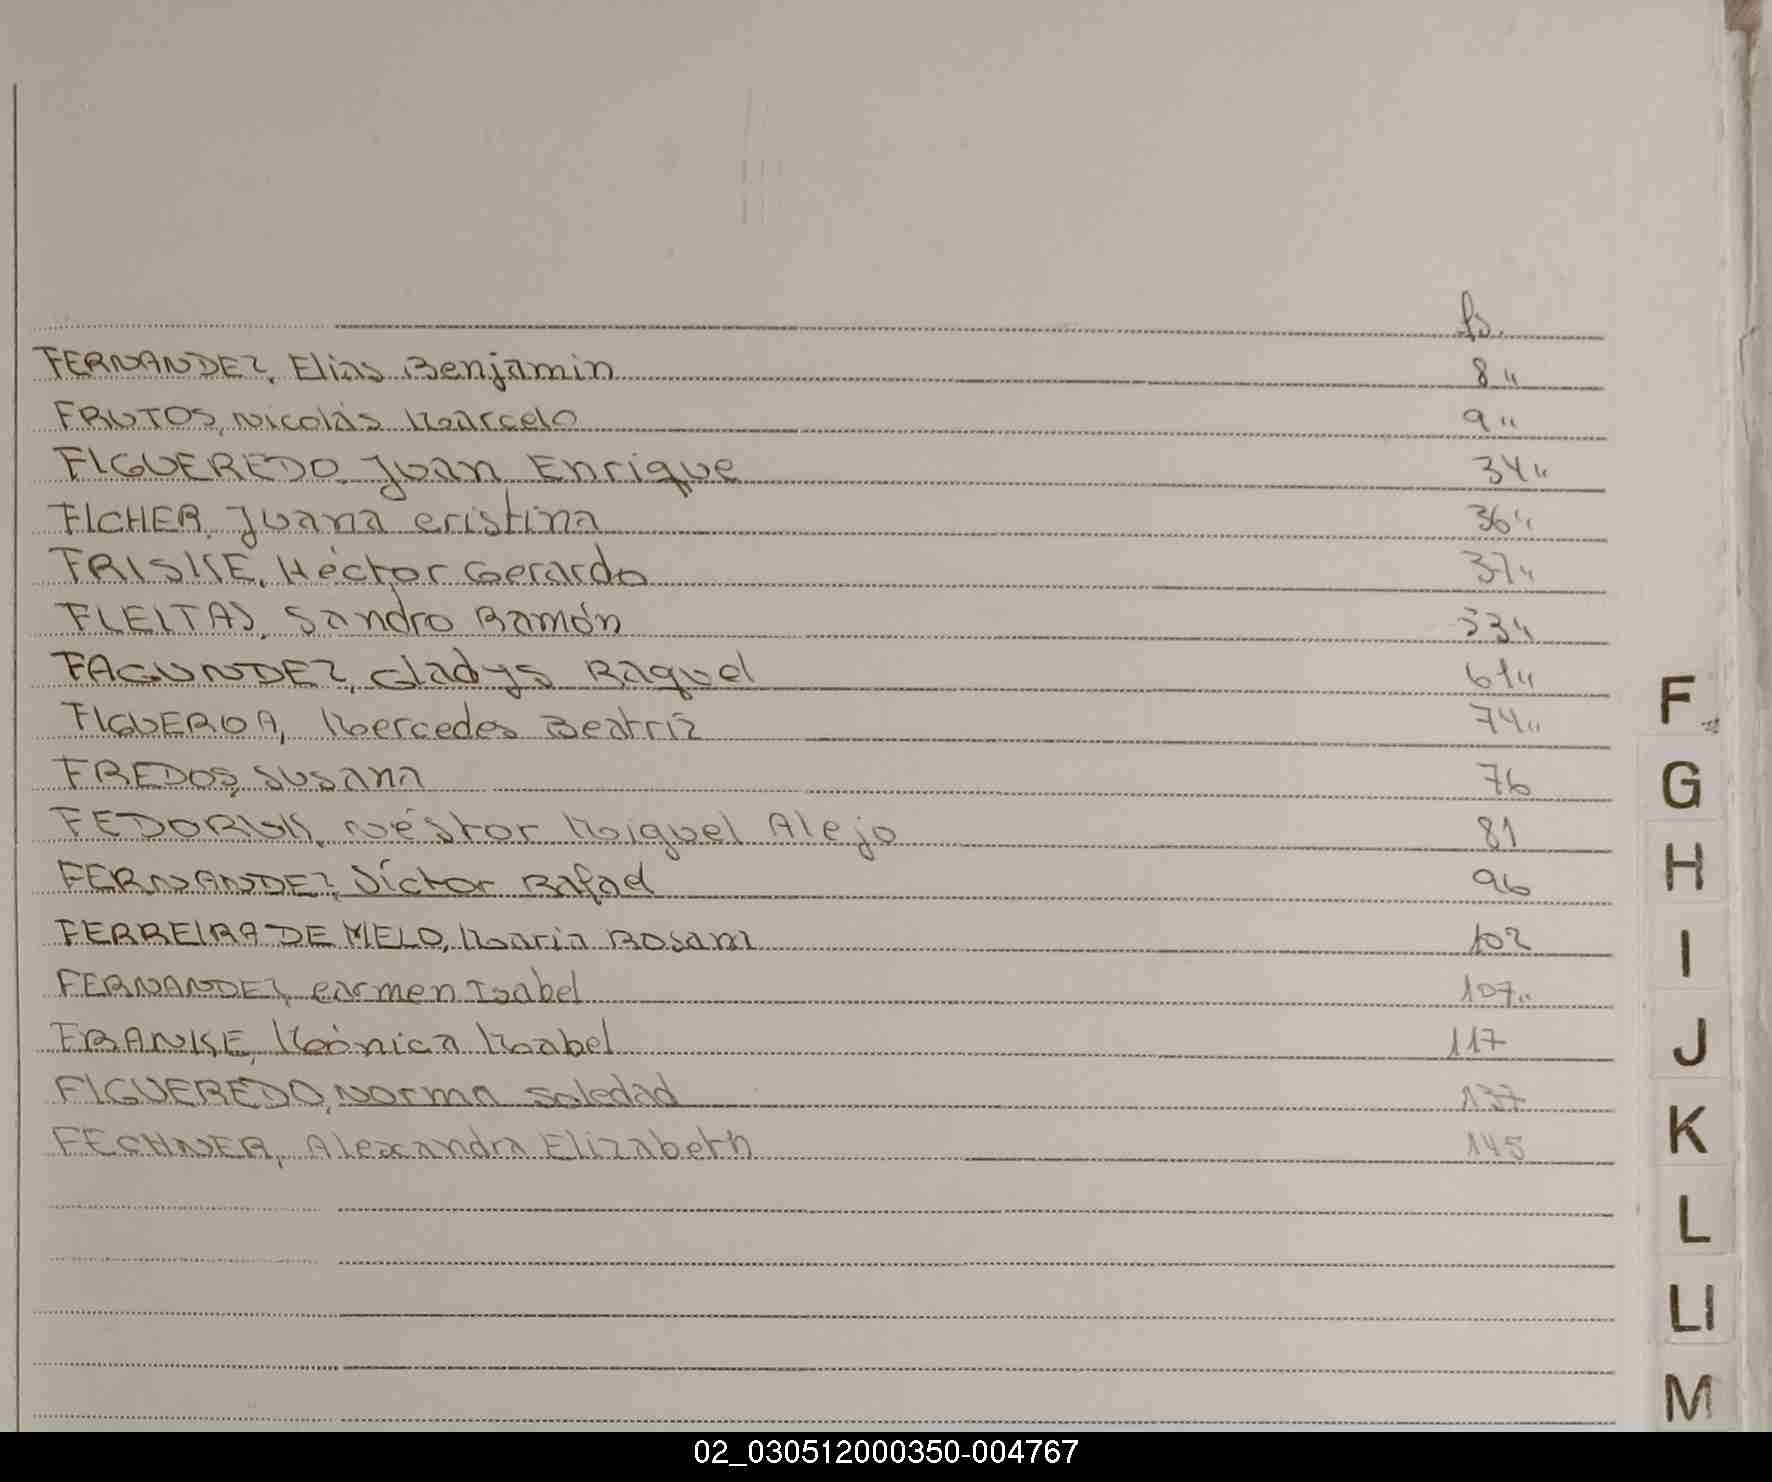 fs.
FERNANDEZ, Elias Benjamin 8"
FRUTOS, Nicolás Marcelo 9"
FIGUEREDO, Juan Enrique 34"
FICHER, Juana Cristina 36"
FRISKE, Héctor Gerardo 37"
FLEITAS, Sandro Ramón 53"
FAGUNDEZ, Gladys Raquel 61"
FIGUEROA, Mercedes Beatriz 74"
FREDOS, Susana 76
FEDORUK, Néstor Miguel Alejo 81
FERNANDEZ, Víctor Rafael 96
FERREIRA DE MELO, Maria Rosani 102
FERNANDEZ, Carmen Isabel 107"
FRANKE, Mónica Mabel 117
FIGUEREDO, Norma Soledad 137
FECHNER, Alexandra Elizabeth 145
F
G
H
I
J
K
L
Ll
M
02_030512000350-004767